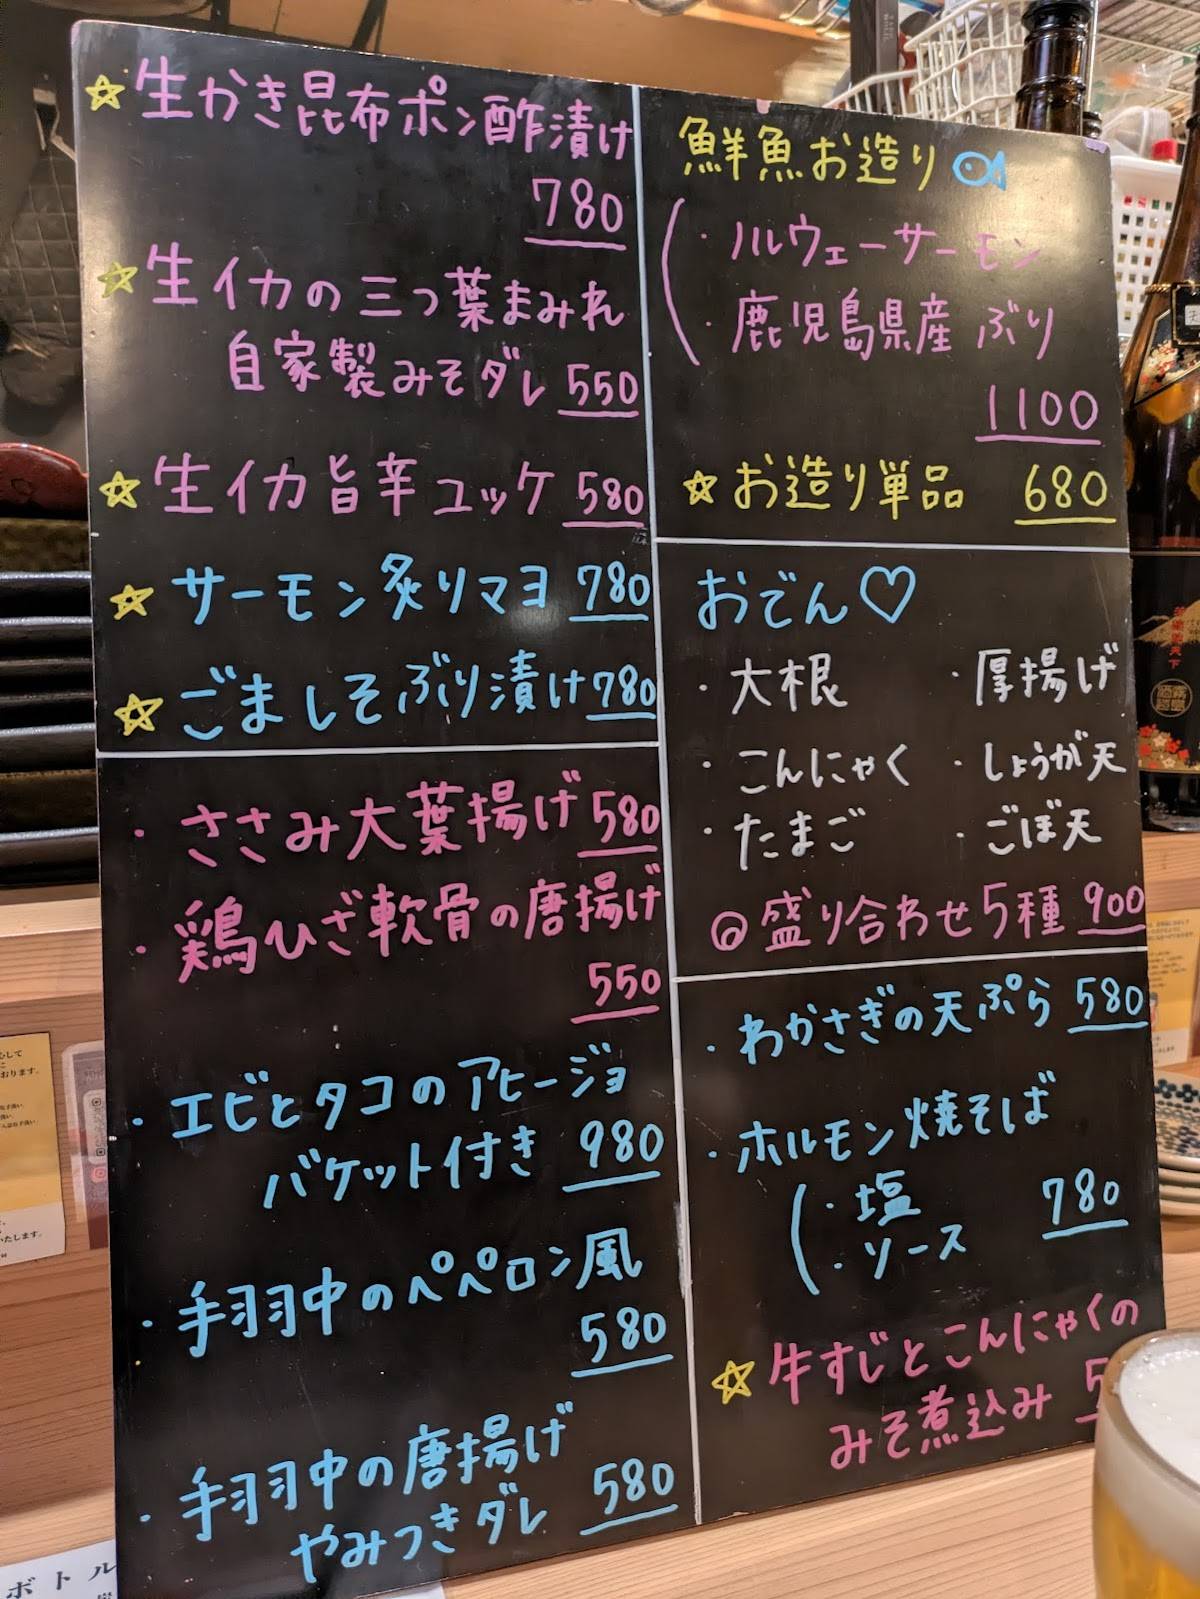 ☆生かき昆布ポン酢漬け
780
☆生イカの三つ葉まみれ
自家製みそダレ 550
☆生イカ旨辛ユッケ 580
☆サーモン炙りマヨ 780
☆ごましそぶり漬け 780
・ささみ大葉揚げ 580
・鶏ひざ軟骨の唐揚げ
550
・エビとタコのアヒージョ
バケット付き 980
・手羽中のペペロン風
580
・手羽中の唐揚げ
やみつきダレ 580
鮮魚お造り
・ノルウェーサーモン
・鹿児島県産 ぶり
1100
☆お造り単品 680
おでん♡
・大根 ・厚揚げ
・こんにゃく ・しょうが天
・たまご ・ごぼ天
◎盛り合わせ5種 900
・わかさぎの天ぷら 580
・ホルモン焼そば
・塩 780
・ソース
☆牛すじとこんにゃくの
みそ煮込み 5
ボトル